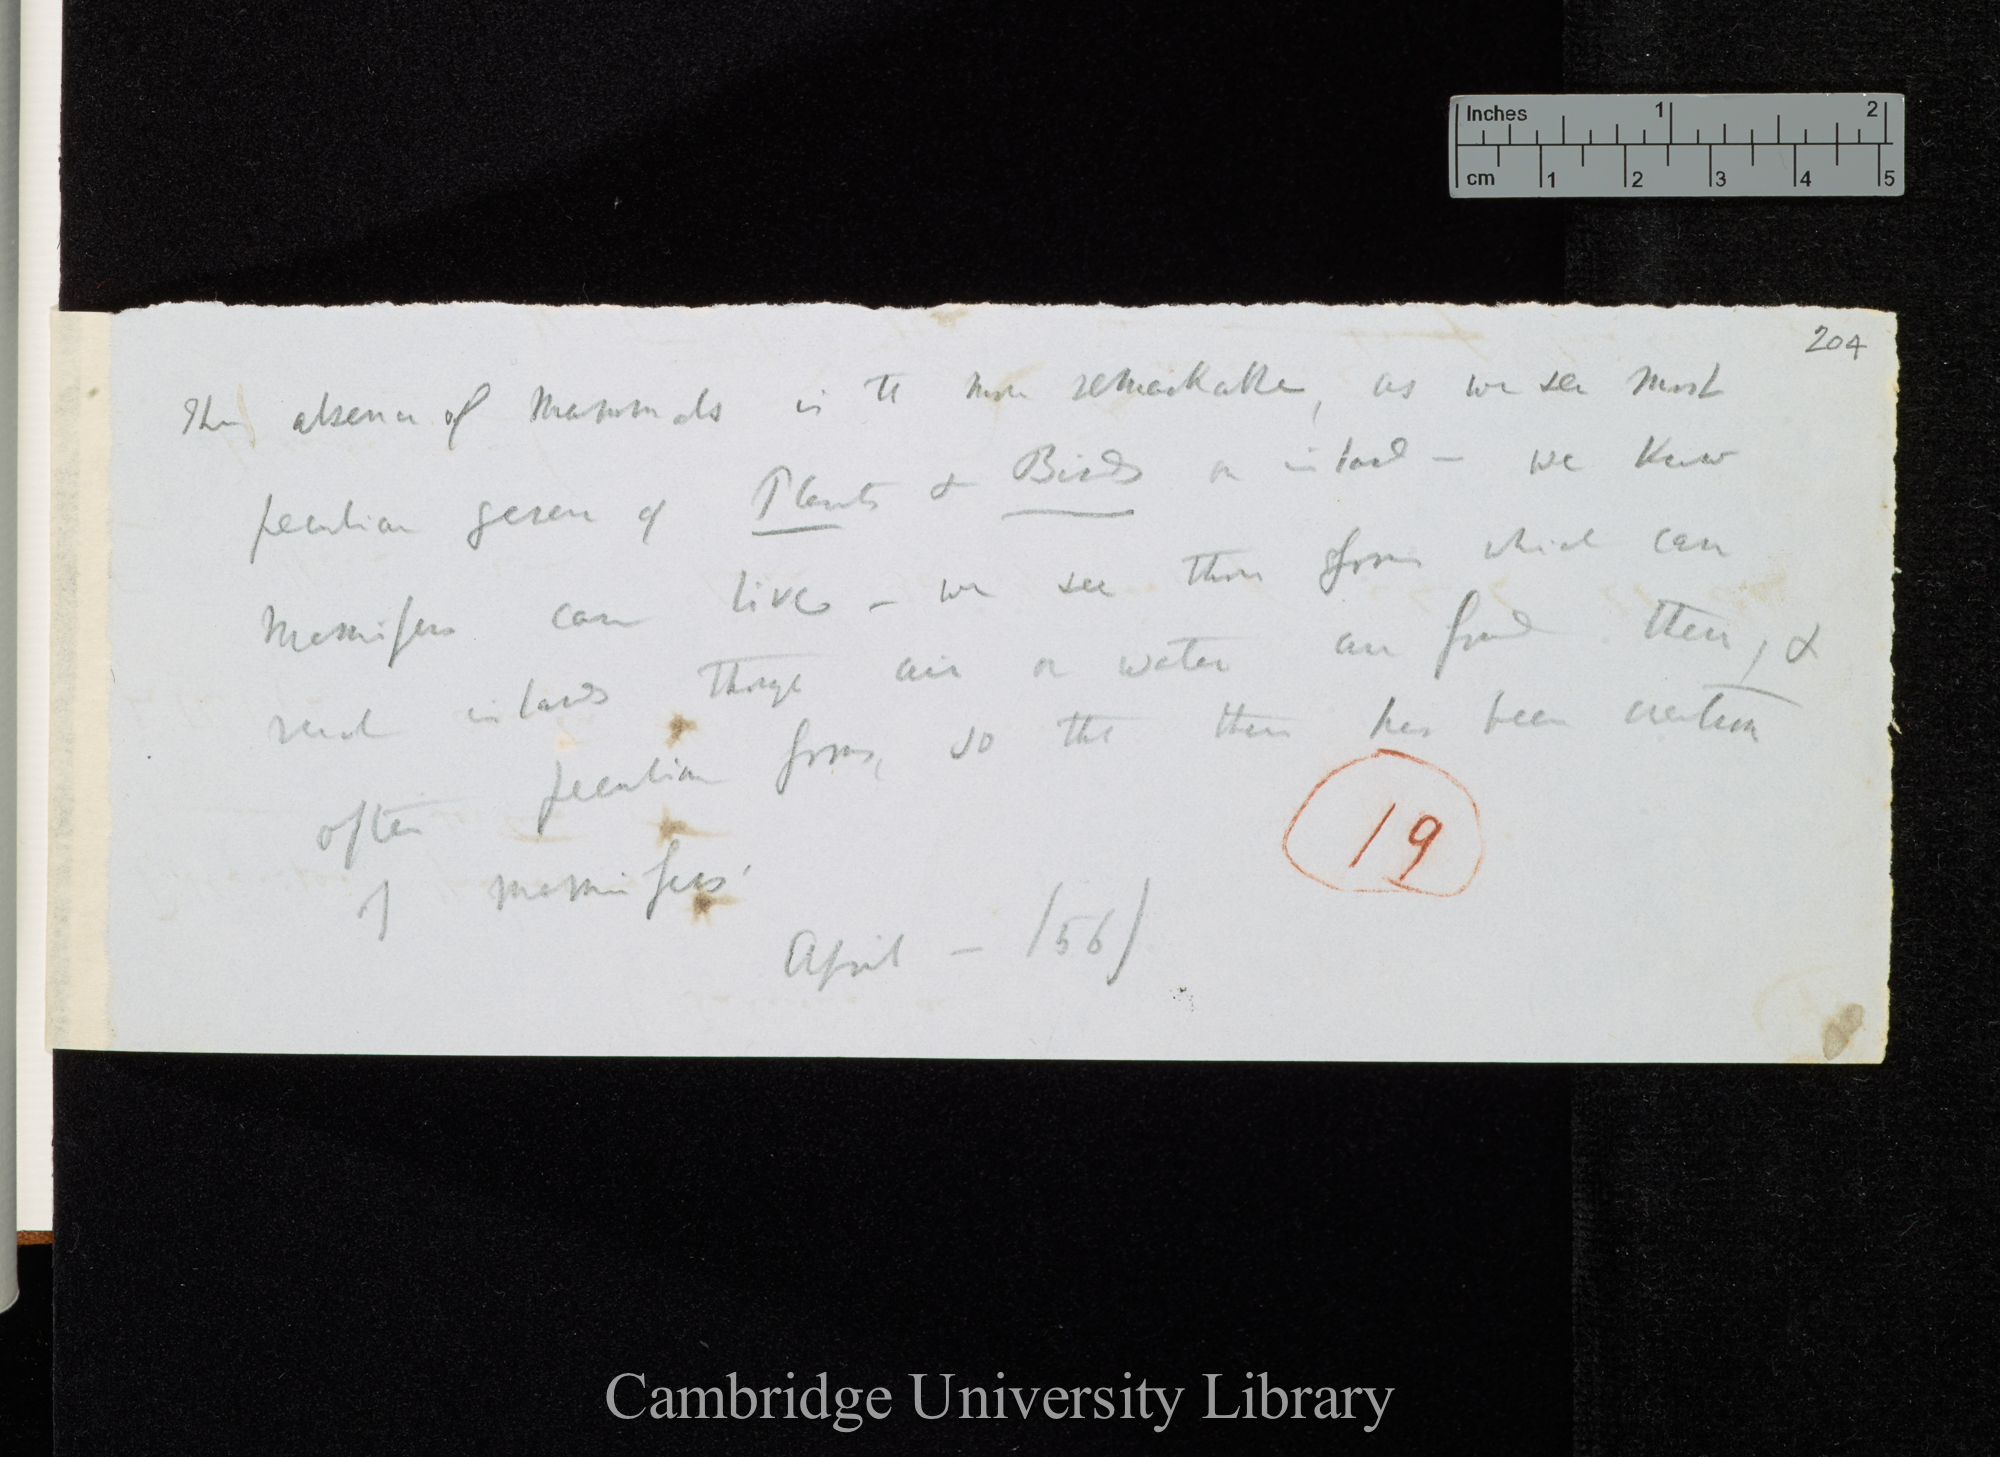 Inches 1 2
cm 1 2 3 4 5
204
The absence of Mammals is the more remarkable, as we see most
peculiar genera of Plants & Birds on island — we know
Mammifers can live — we see those forms which can
reach islands through air or water are found there, &
often peculiar forms, so that there has been creation
of mammifers.
19
April — /56/
Cambridge University Library